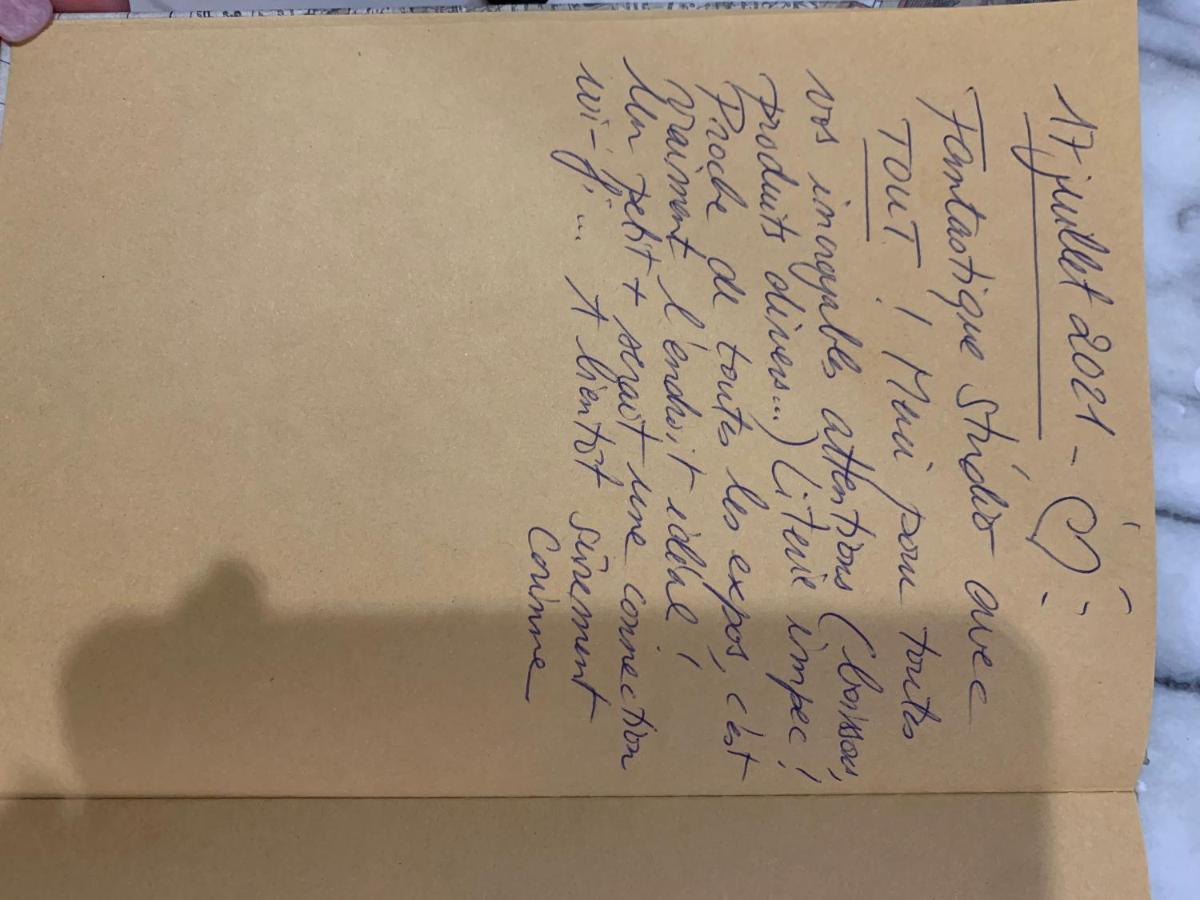 17 juillet 2021 - ♡
Fantastique studio avec
TOUT ! Merci pour toutes
vos incroyables attentions (boisson,
produits divers...) Literie impec !
Proche de toutes les expos, c'est
vraiment l'endroit idéal !
Un petit + serait une connection
wi-fi... A bientôt sûrement
Corinne